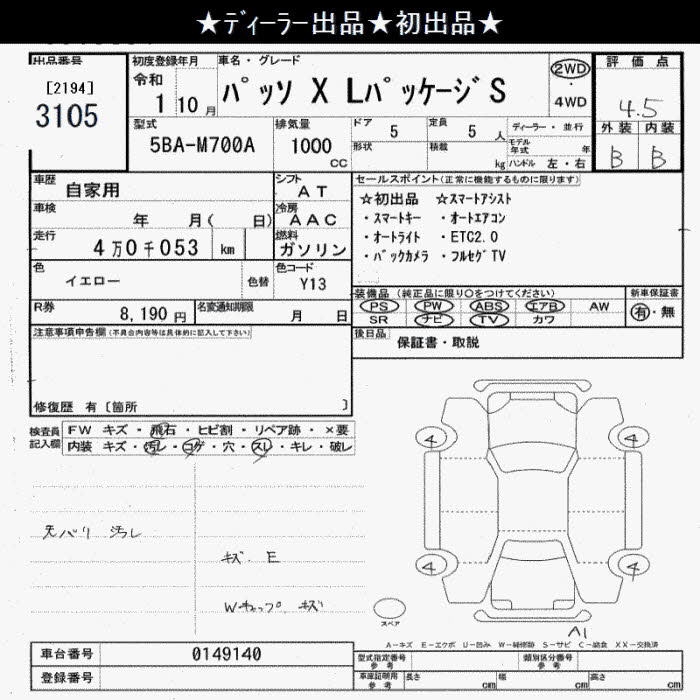 ★ディーラー出品★初出品★
出品番号
[2194]
3105
初度登録年月
令和
1 10月
車名・グレード
パッソ X LパッケージS
2WD
・
4WD
評価点
4.5
外装 内装
B B
型式
5BA-M700A
排気量
1000
CC
ドア
5
定員
5 人
形状
積載
kg
ディーラー・並行
モデル年式 年
ハンドル 左・右
車歴
自家用
シフト
AT
車検
年 月( 日)
冷房
AAC
走行
4万0千053 km
燃料
ガソリン
色
イエロー
色替
色コード
Y13
R券
8,190 円
名変通知期限
月 日
セールスポイント(正常に機能するものに限ります)
☆初出品 ☆スマートアシスト
・スマートキー ・オートエアコン
・オートライト ・ETC2.0
・バックカメラ ・フルセグTV
装備品 (純正品に限り〇をつけてください)
PS PW ABS エアB AW
SR ナビ TV カワ
新車保証書
有・無
後日品
保証書・取説
注意事項申告欄(不具合内容等は具体的に記入して下さい)
修復歴 有〔箇所 〕
検査員
記入欄
FW キズ・飛石・ヒビ割・リペア跡・×要
内装 キズ・汚レ・コゲ・穴・スレ・キレ・破レ
天バリ 汚レ
キズ.E
Wキャップ キズ
4 4
4 4
スペア
A1
A－キズ E－エクボ U－凹み W－補修跡 S－サビ C－腐食 XX－交換済
車台番号
0149140
登録番号
型式指定番号
参考
類別区分番号
参考
車庫証明用
参考
長さ cm
幅 cm
高さ cm